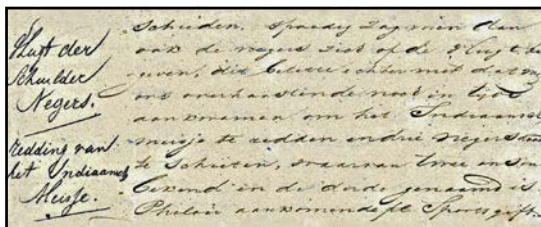 Vlugt der
schuilder
Negers.
redding van
het Indiaansch
Meisje.
schieden, spoedig zag men dan
ook de negers zich op de vlugt te
geven, dit belette echter niet dat wij
ons overhaastende nog in tijds
aankwamen om het Indiaansch
meisje te redden en drie negers dood
te schieten, waarvan twee en on
bekend en de derde genaamd is
Philair aankomende pl. Sports gift